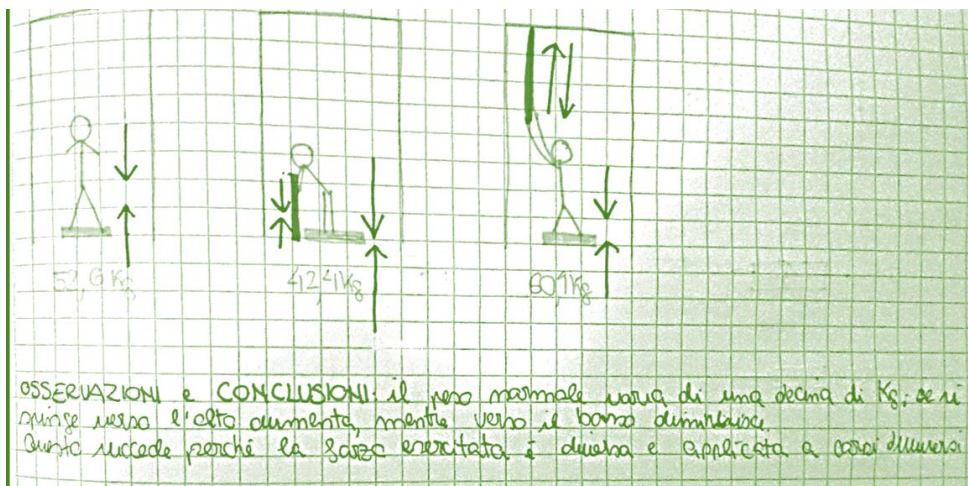 52,9 Kg
42,4 Kg
60,1 Kg
OSSERVAZIONI e CONCLUSIONI: il peso normale varia di una decina di Kg; se si
spinge verso l'alto aumenta, mentre verso il basso diminuisce.
Questo succede perché la forza esercitata è diversa e applicata a corpi diversi